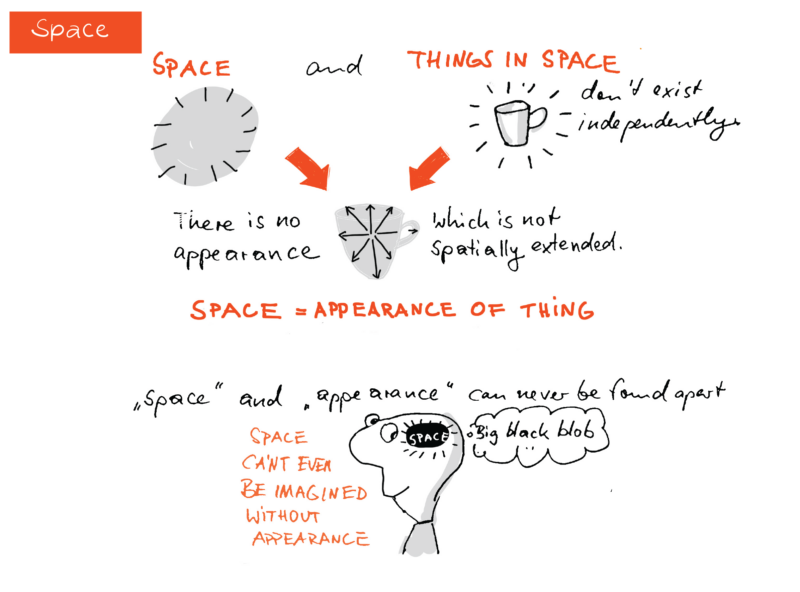 Space
SPACE and THINGS IN SPACE
don't exist
independently.
There is no
appearance
which is not
spatially extended.
SPACE = APPEARANCE OF THING
„Space" and „appearance" can never be found apart
SPACE
CAN'T EVER
BE IMAGINED
WITHOUT
APPEARANCE
SPACE
Big black blob